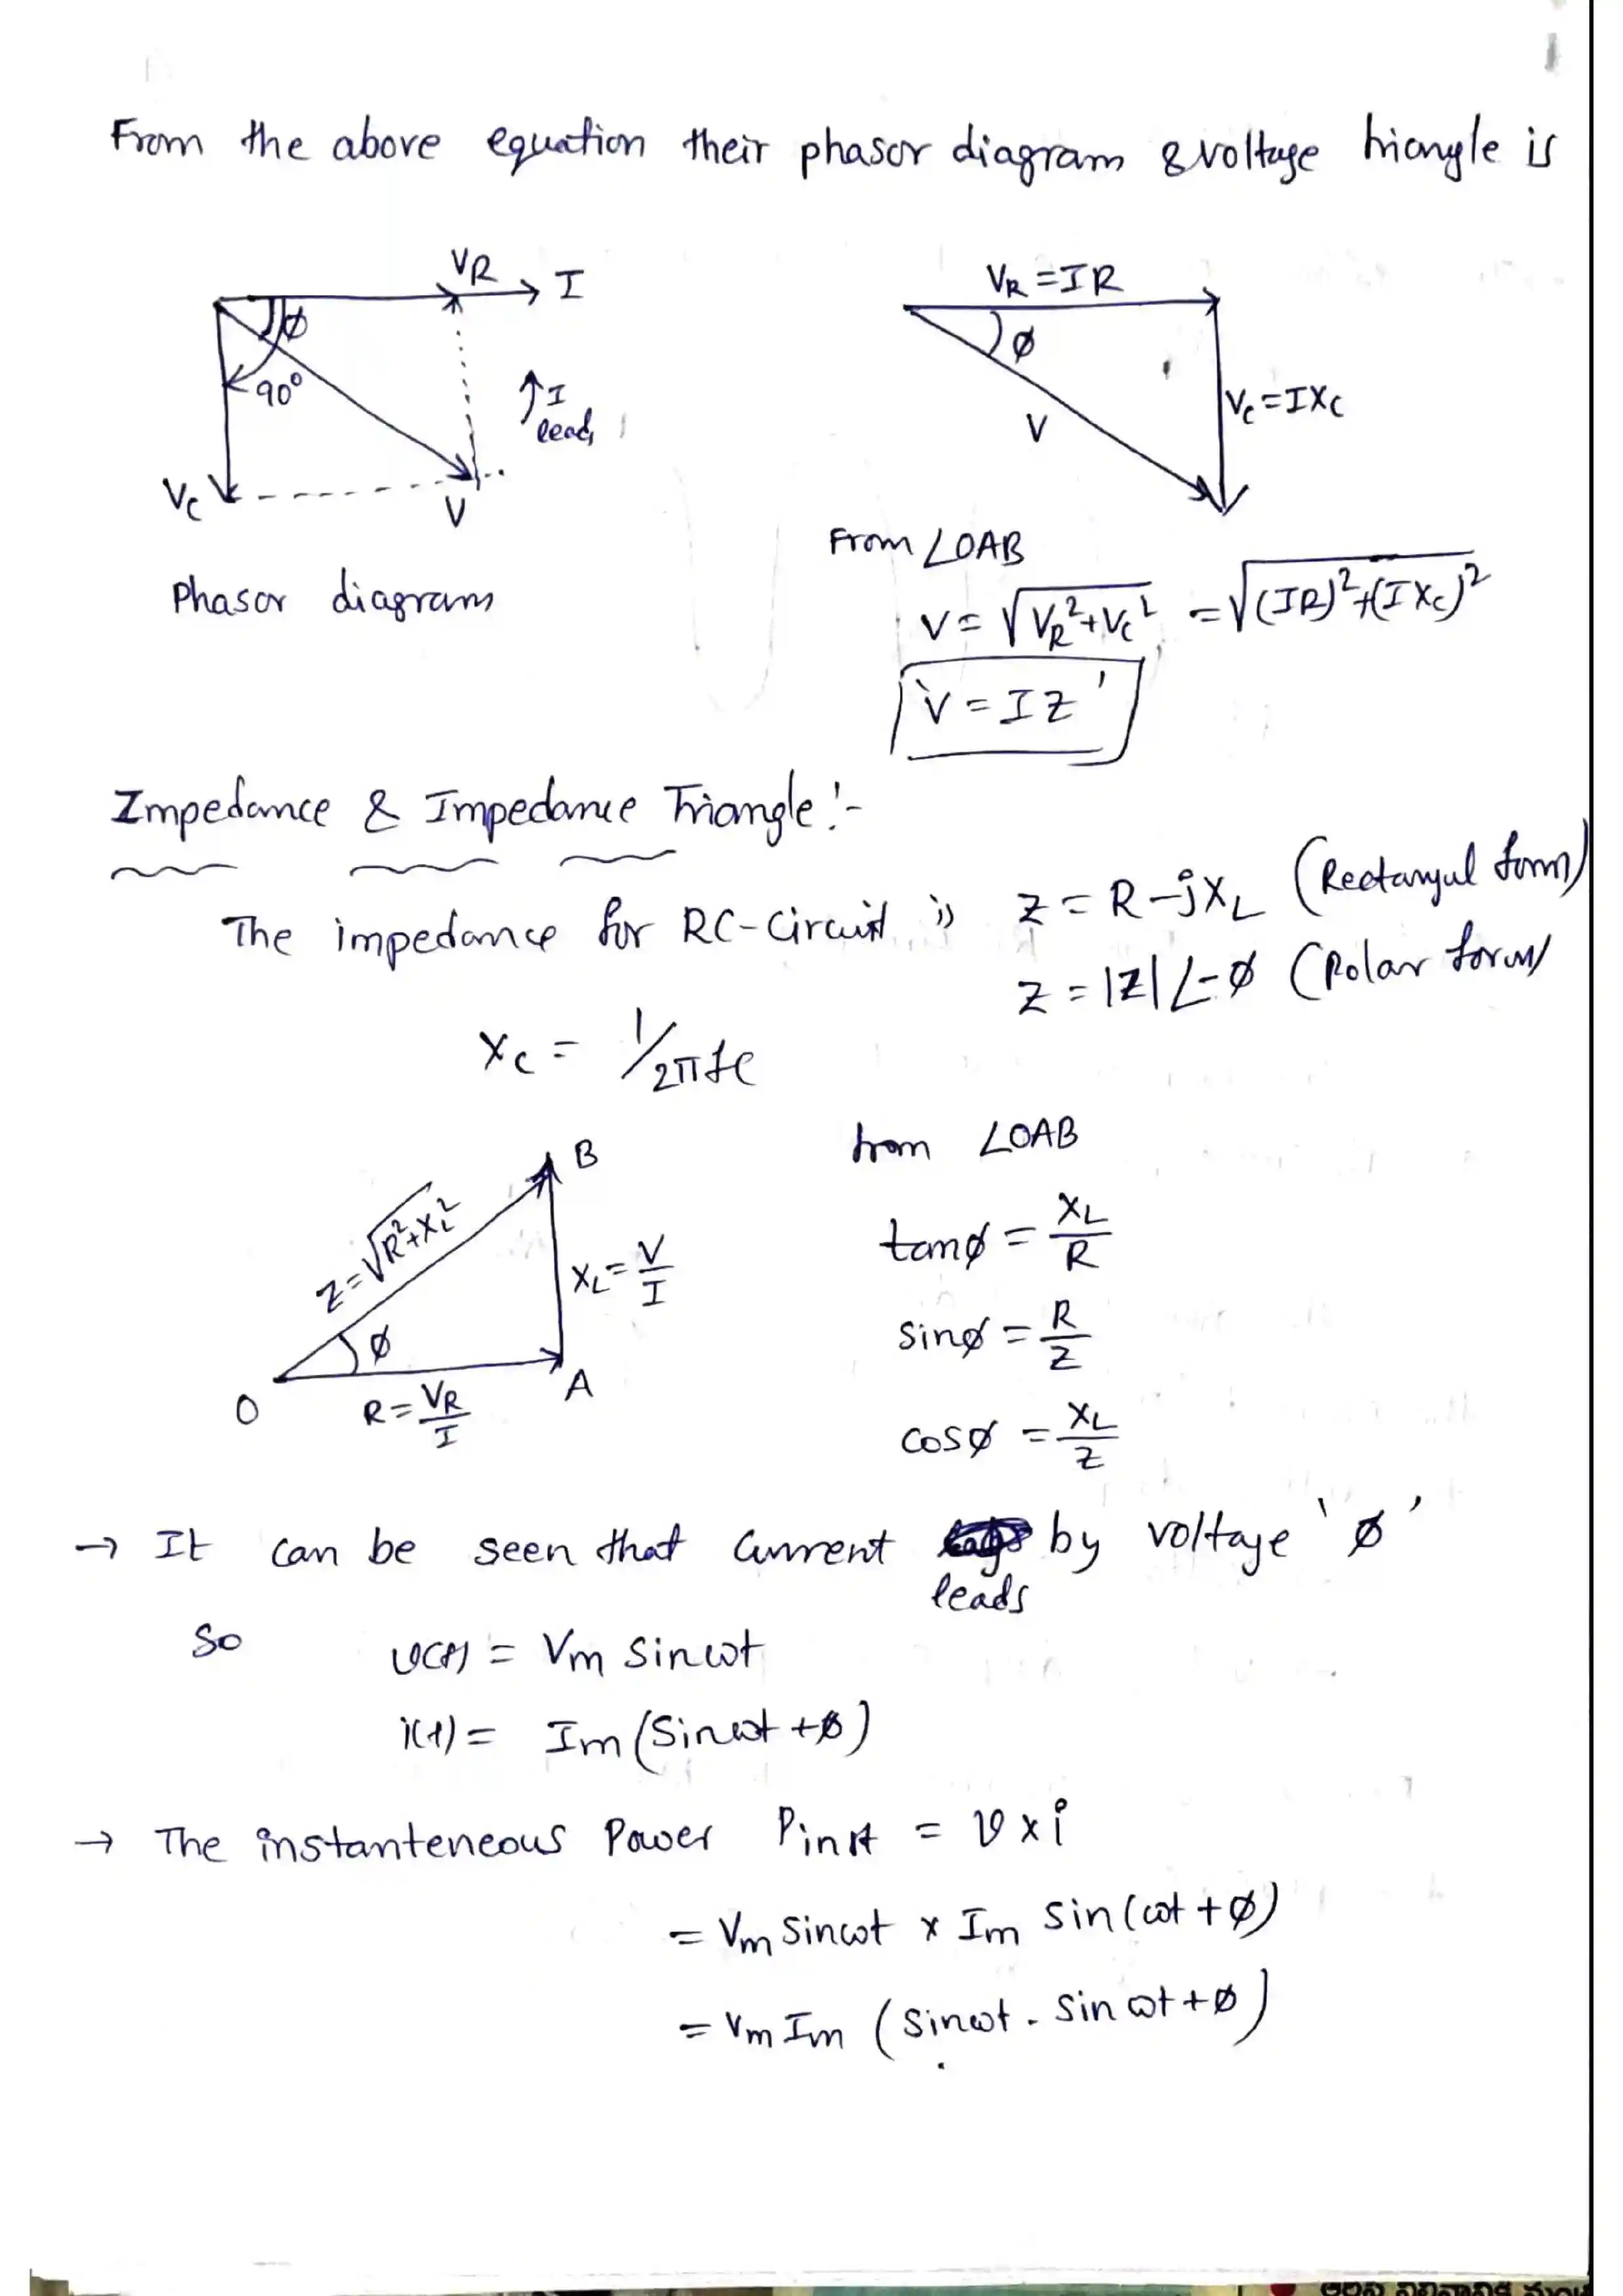 From the above equation their phasor diagram & voltage triangle is
VR I
φ
90°
↑I
lead,
VC
V
Phasor diagram
VR = IR
φ
V
Vc = IXc
From ∠OAB
V = √VR²+Vc² = √(IR)²+(IXc)²
V = IZ
Impedance & Impedance Triangle:-
The impedance for RC-Circuit is Z = R-jXL (Rectangul form)
Z = |Z| ∠-φ (Polar form)
Xc = 1/2πfc
B
Z=√R²+XL²
XL = V/I
φ
O
R = VR/I
A
from ∠OAB
tanφ = XL/R
sinφ = R/Z
cosφ = XL/Z
→ It can be seen that current leads by voltage 'φ'
So v(t) = Vm sinωt
i(t) = Im (Sinωt +φ)
→ The instanteneous Power Pinst = v x i
= Vm sinωt x Im sin(ωt +φ)
= Vm Im (sinωt . sin ωt +φ)